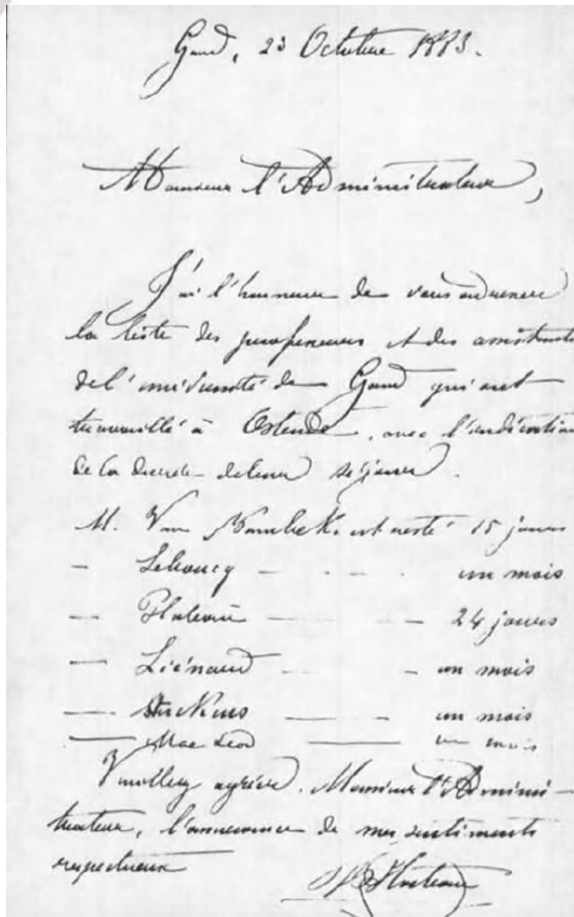 Gand, 23 Octobre 1883.
Monsieur l'Administrateur,
J'ai l'honneur de vous adresser
la liste des professeurs et des assistants
de l'université de Gand qui ont
travaillé à Ostende, avec l'indication
de la durée de leur séjour.
M. Van Bambeke est resté 15 jours
— Leboucq — — — un mois
— Plateau — — — 24 jours
— Liénard — — un mois
— Stuckens — — un mois
— Mac Leod — un mois
Veuillez agréer, Monsieur l'Adminis-
trateur, l'assurance de mes sentiments
respectueux
Plateau